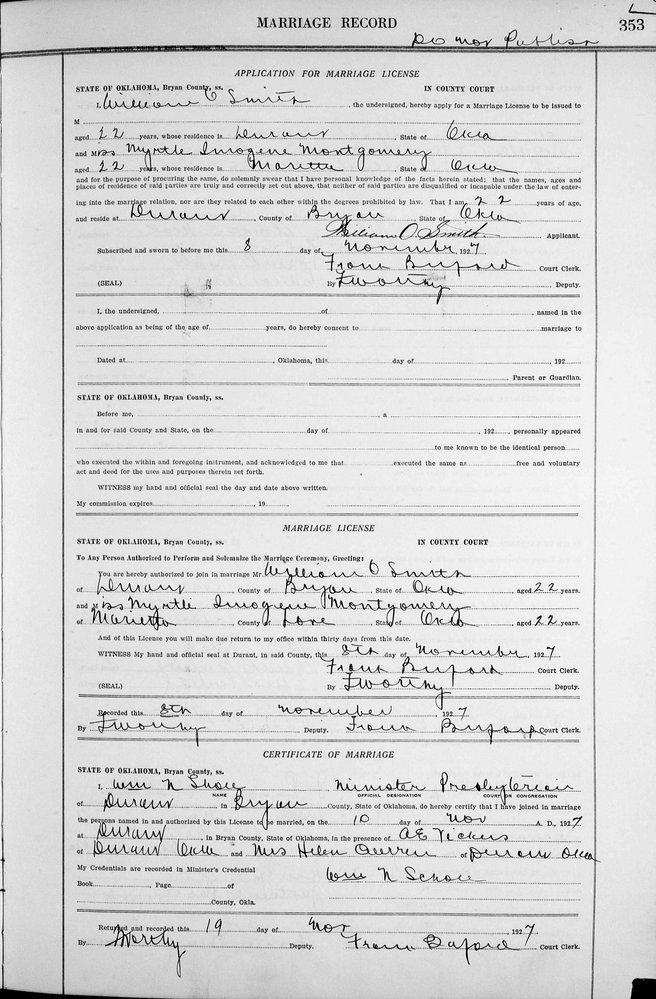 MARRIAGE RECORD
353
Do Not Publish
APPLICATION FOR MARRIAGE LICENSE
STATE OF OKLAHOMA, Bryan County, ss. IN COUNTY COURT
I, William O Smith, the undersigned, hereby apply for a Marriage License to be issued to
M
aged 22 years, whose residence is Durant, State of Okla
and Miss Myrtle Imogene Montgomery
aged 22 years, whose residence is Marietta, State of Okla
and for the purpose of procuring the same, do solemnly swear that I have personal knowledge of the facts herein stated; that the names, ages and
places of residence of said parties are truly and correctly set out above, that neither of said parties are disqualified or incapable under the law of enter-
ing into the marriage relation, nor are they related to each other within the degrees prohibited by law. That I am 22 years of age,
and reside at Durant, County of Bryan, State of Okla
William O. Smith Applicant.
Subscribed and sworn to before me this 8 day of November, 1927
Frank Buford Court Clerk.
(SEAL) By F Worthy Deputy.
I, the undersigned, of, named in the
above application as being of the age of years, do hereby consent to marriage to
Dated at, Oklahoma, this day of, 192
Parent or Guardian.
STATE OF OKLAHOMA, Bryan County, ss.
Before me,, a
in and for said County and State, on the day of, 192, personally appeared
to me known to be the identical person
who executed the within and foregoing instrument, and acknowledged to me that executed the same as free and voluntary
act and deed for the uses and purposes therein set forth.
WITNESS my hand and official seal the day and date above written.
My commission expires, 19
MARRIAGE LICENSE
STATE OF OKLAHOMA, Bryan County, ss. IN COUNTY COURT
To Any Person Authorized to Perform and Solemnize the Marriage Ceremony, Greeting:
You are hereby authorized to join in marriage Mr. William O Smith
of Durant, County of Bryan, State of Okla aged 22 years.
and Miss Myrtle Imogene Montgomery
of Marietta County of Love, State of Okla aged 22 years.
And of this License you will make due return to my office within thirty days from this date.
WITNESS My hand and official seal at Durant, in said County, this 8th day of November, 1927
Frank Buford Court Clerk.
(SEAL) By F Worthy Deputy.
Recorded this 8th day of November 1927
By F Worthy, Deputy. Frank Buford Court Clerk.
CERTIFICATE OF MARRIAGE
STATE OF OKLAHOMA, Bryan County, ss.
I, Wm N Scholl Minister Presbyterian
NAME OFFICIAL DESIGNATION COURT OR CONGREGATION
of Durant in Bryan County, State of Oklahoma, do hereby certify that I have joined in marriage
the persons named in and authorized by this License to be married, on the 10 day of Nov A. D., 1927
at Durant, in Bryan County, State of Oklahoma, in the presence of A E Vickers
of Durant Okla and Mrs Helen of Durant Okla
My Credentials are recorded in Minister's Credential Wm N Scholl
Book, Page of
County, Okla.
Returned and recorded this 19 day of Nov 1927
By Worthy Deputy. Frank Buford Court Clerk.